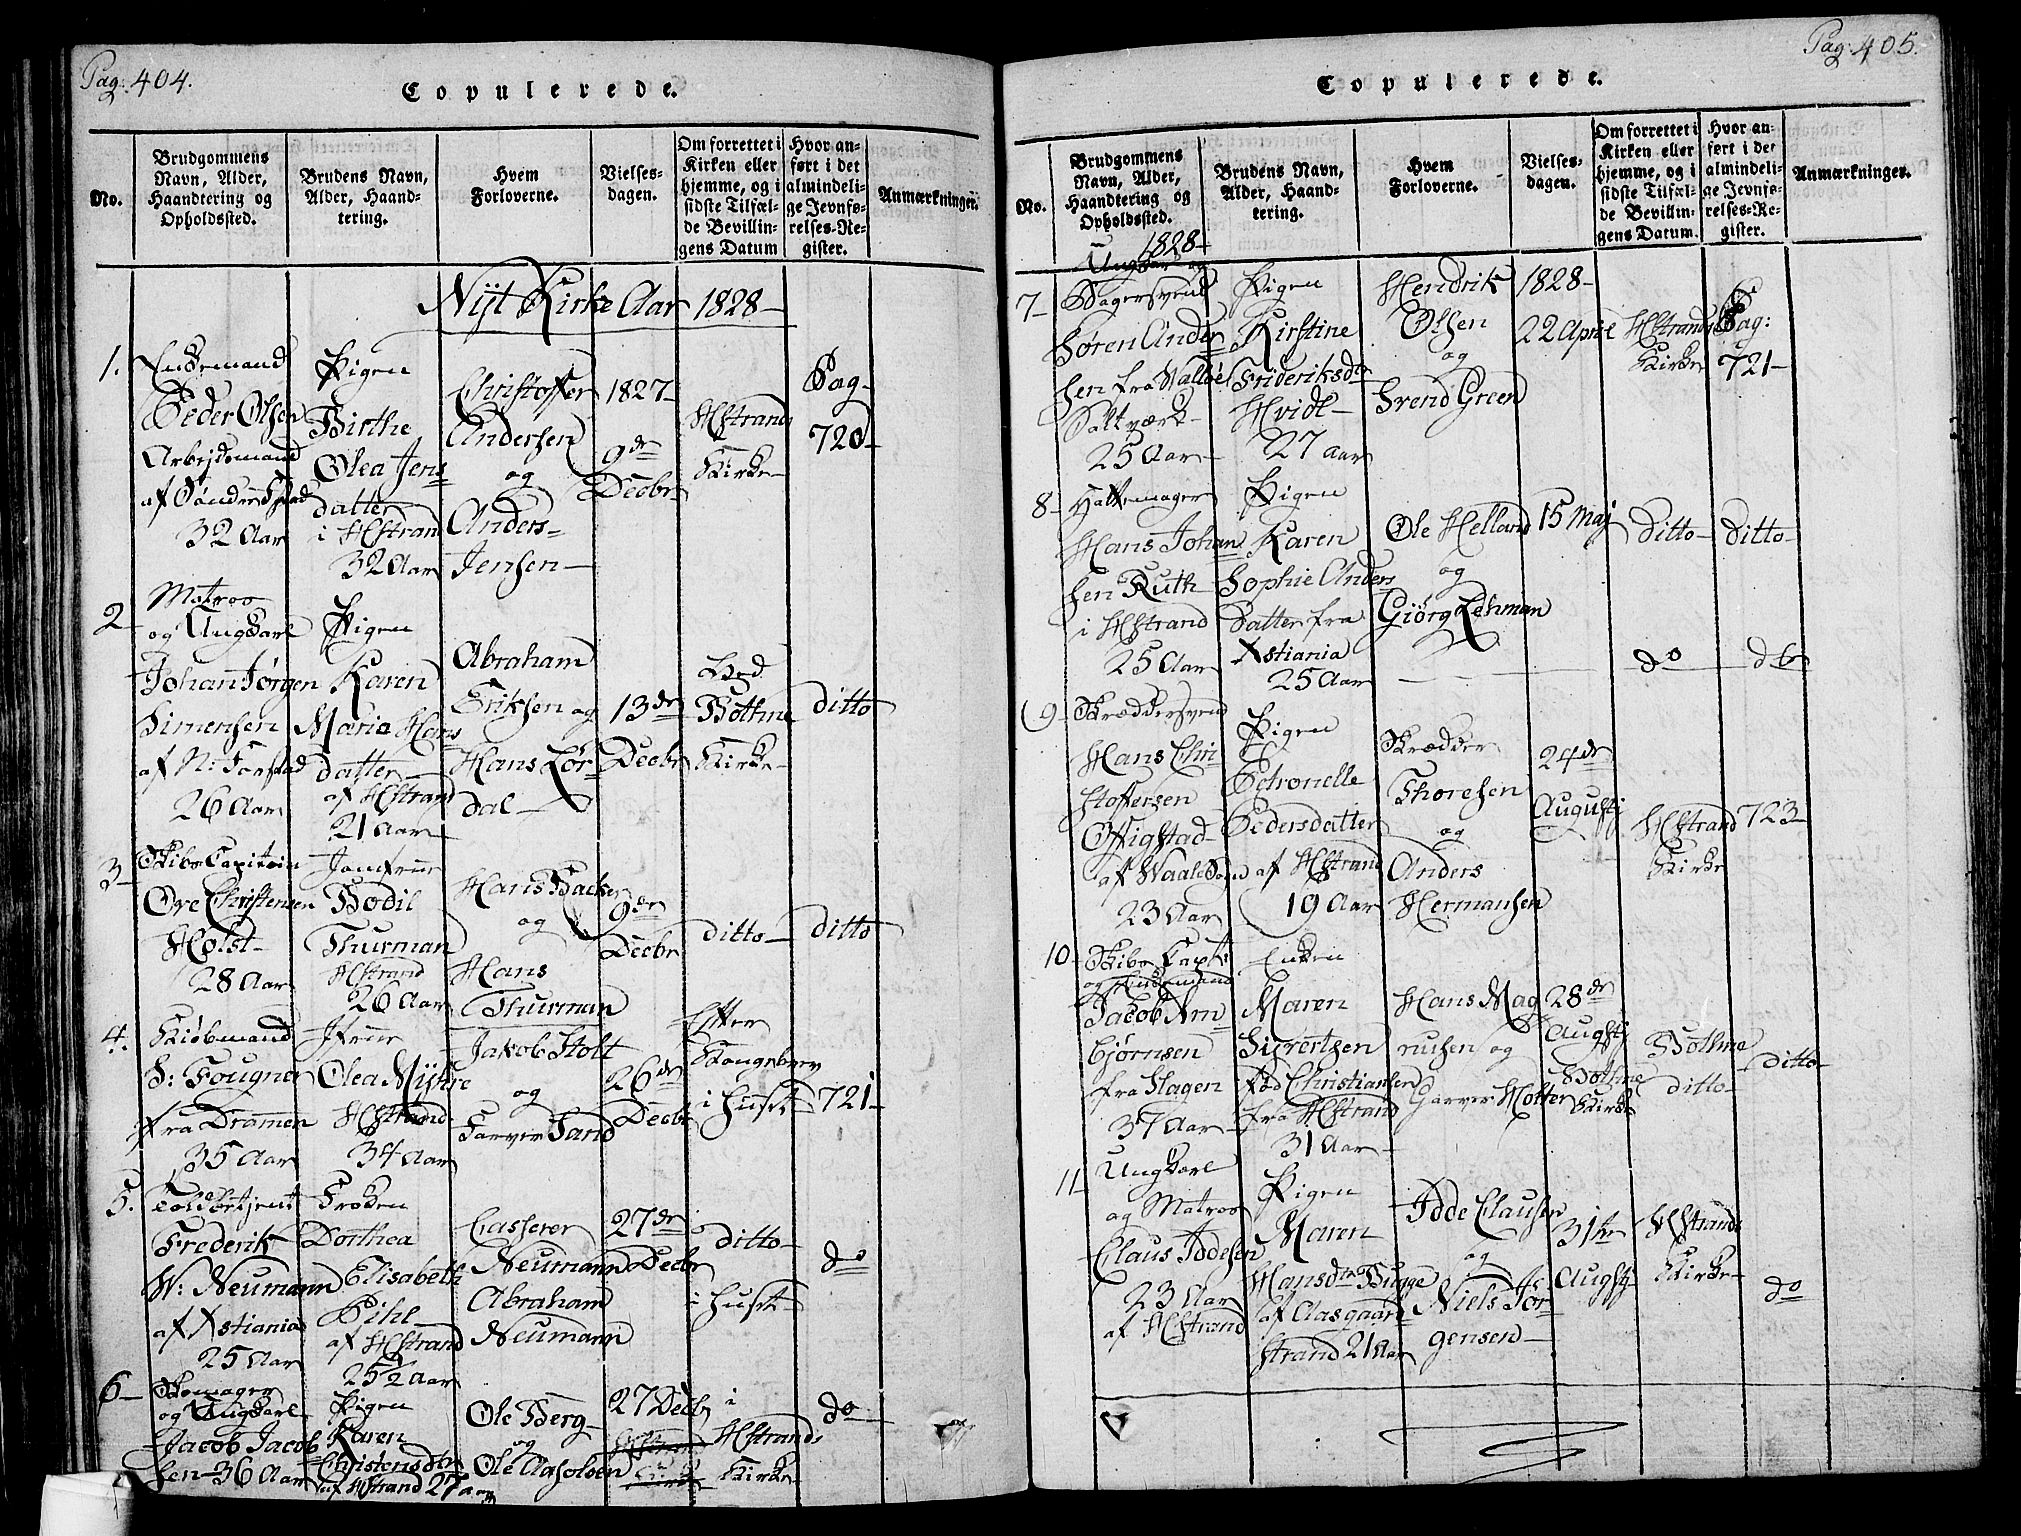 Pag: 404.
Copulerede.
No.
Brudgommens Navn, Alder, Haandtering og Opholdssted.
Brudens Navn, Alder, Haandtering.
Hvem Forloverne.
Vielsesdagen.
Om forrettet i Kirken eller hjemme, og i sidste Tilfælde Bevillingens Datum
Hvor anført i det almindelige Jevnførelses-Register.
Anmærkninger.
Nyt Kirke Aar 1828
1.
Enkemand
Peder Olsen
Arbejdsmand
32 Aar
Pigen
Birthe
Olea Jens
datter
i HStrand
32 Aar
Christoffer
Andersen
og
Anders
Jensen
1827
9de
Decbr
HStrands
Kirke
Pag
720
2
Matros
og Ungkarl
Johan Jørgen
Simensen
26 Aar
Pigen
Karen
Maria Hans
datter
af HStrand
21 Aar
Abraham
Eriksen og
Hans Lør
dal
13de
Decbr
Ved
Bothne
Kirke
ditto
3
Skibs Capitain
Ove Christensen
Holst
28 Aar
Jomfrue
Bodil
Thurman
HStrand
26 Aar
Hans Backer
og
Hans
Thurman
9de
Decbr
ditto
ditto
4.
Kiøbmand
S: Fougner
fra Dramen
35 Aar
Jfrue
Olea Myhre
HStrand
34 Aar
Jakob Stolt
og
Farver Sand
26de
Decbr
Efter
Kongebrev
i Huset
721
5.
Toldbetjent
Frederik
W: Neumann
af Xstiania
25 Aar
Frøken
Dorthea
Elisabeth
Pihl
af HStrand
25½ Aar
Casserer
Neumann
Abraham
Neumann
27de
Decbr
ditto
i Huset
do
6
Skomager
og Ungkarl
Jacob Jacob
sen 36 Aar
Pigen
Karen
Christensdtr
af HStrand 27 aar
Ole Berg
og
Ole Aasolsen
27 Decbr
i
HStrands
Kirke
do
Pag: 405.
Copulerede.
No.
Brudgommens Navn, Alder, Haandtering og Opholdssted.
Brudens Navn, Alder, Haandtering.
Hvem Forloverne.
Vielsesdagen.
Om forrettet i Kirken eller hjemme, og i sidste Tilfælde Bevillingens Datum.
Hvor anført i det almindelige Jevnførelses-Register.
Anmærkninger.
1828
7
Ungkarl og
Bagersvend
Søren Ander
sen fra Walløe
Saltværk
25 Aar
Pigen
Kirstine
Frideriksdtr
Hvidt
27 aar
Hendrik
Olsen
og
Svend Green
1828
22 April
HStrands
Kirke
Pag:
721
8
Hattemager
Hans Johan
sen Ruth
i HStrand
25 Aar
Pigen
Karen
Sophie Anders
Datter fra
Xstiania
25 Aar
Ole Helland
og
Giörg Lehman
15 Maj
ditto
ditto
do
do
9
Skræddersvend
Hans Chri
stoffersen
af Waale Sogn
23 Aar
Pigen
Petronelle
Pedersdatter
af HStrand
19 Aar
Skrædder
Thoresen
og
Anders
Hermansen
24de
Augusti
HStrand
Kirke
723
10
Skibs Capt:
og Enkemand
Jacob Arn
bjørnsen
fra Slagen
37 Aar
Enken
Maren
Sivertsen
fød Christiansen
fra HStrand
31 Aar
Hans Mag
nusen og
Garver Holter
28de
Augsti
Bothne
Kirke
Bothne
ditto
ditto
11
Ungkarl
og Matros
Claus Iddesen
23 Aar
af HStrand
Pigen
Maren
Hansdtr Bugge
af Aasgaard
strand 21 Aar
Idde Clausen
og
Niels Jør
gensen
31te
Augsti
HStrands
Kirke
do